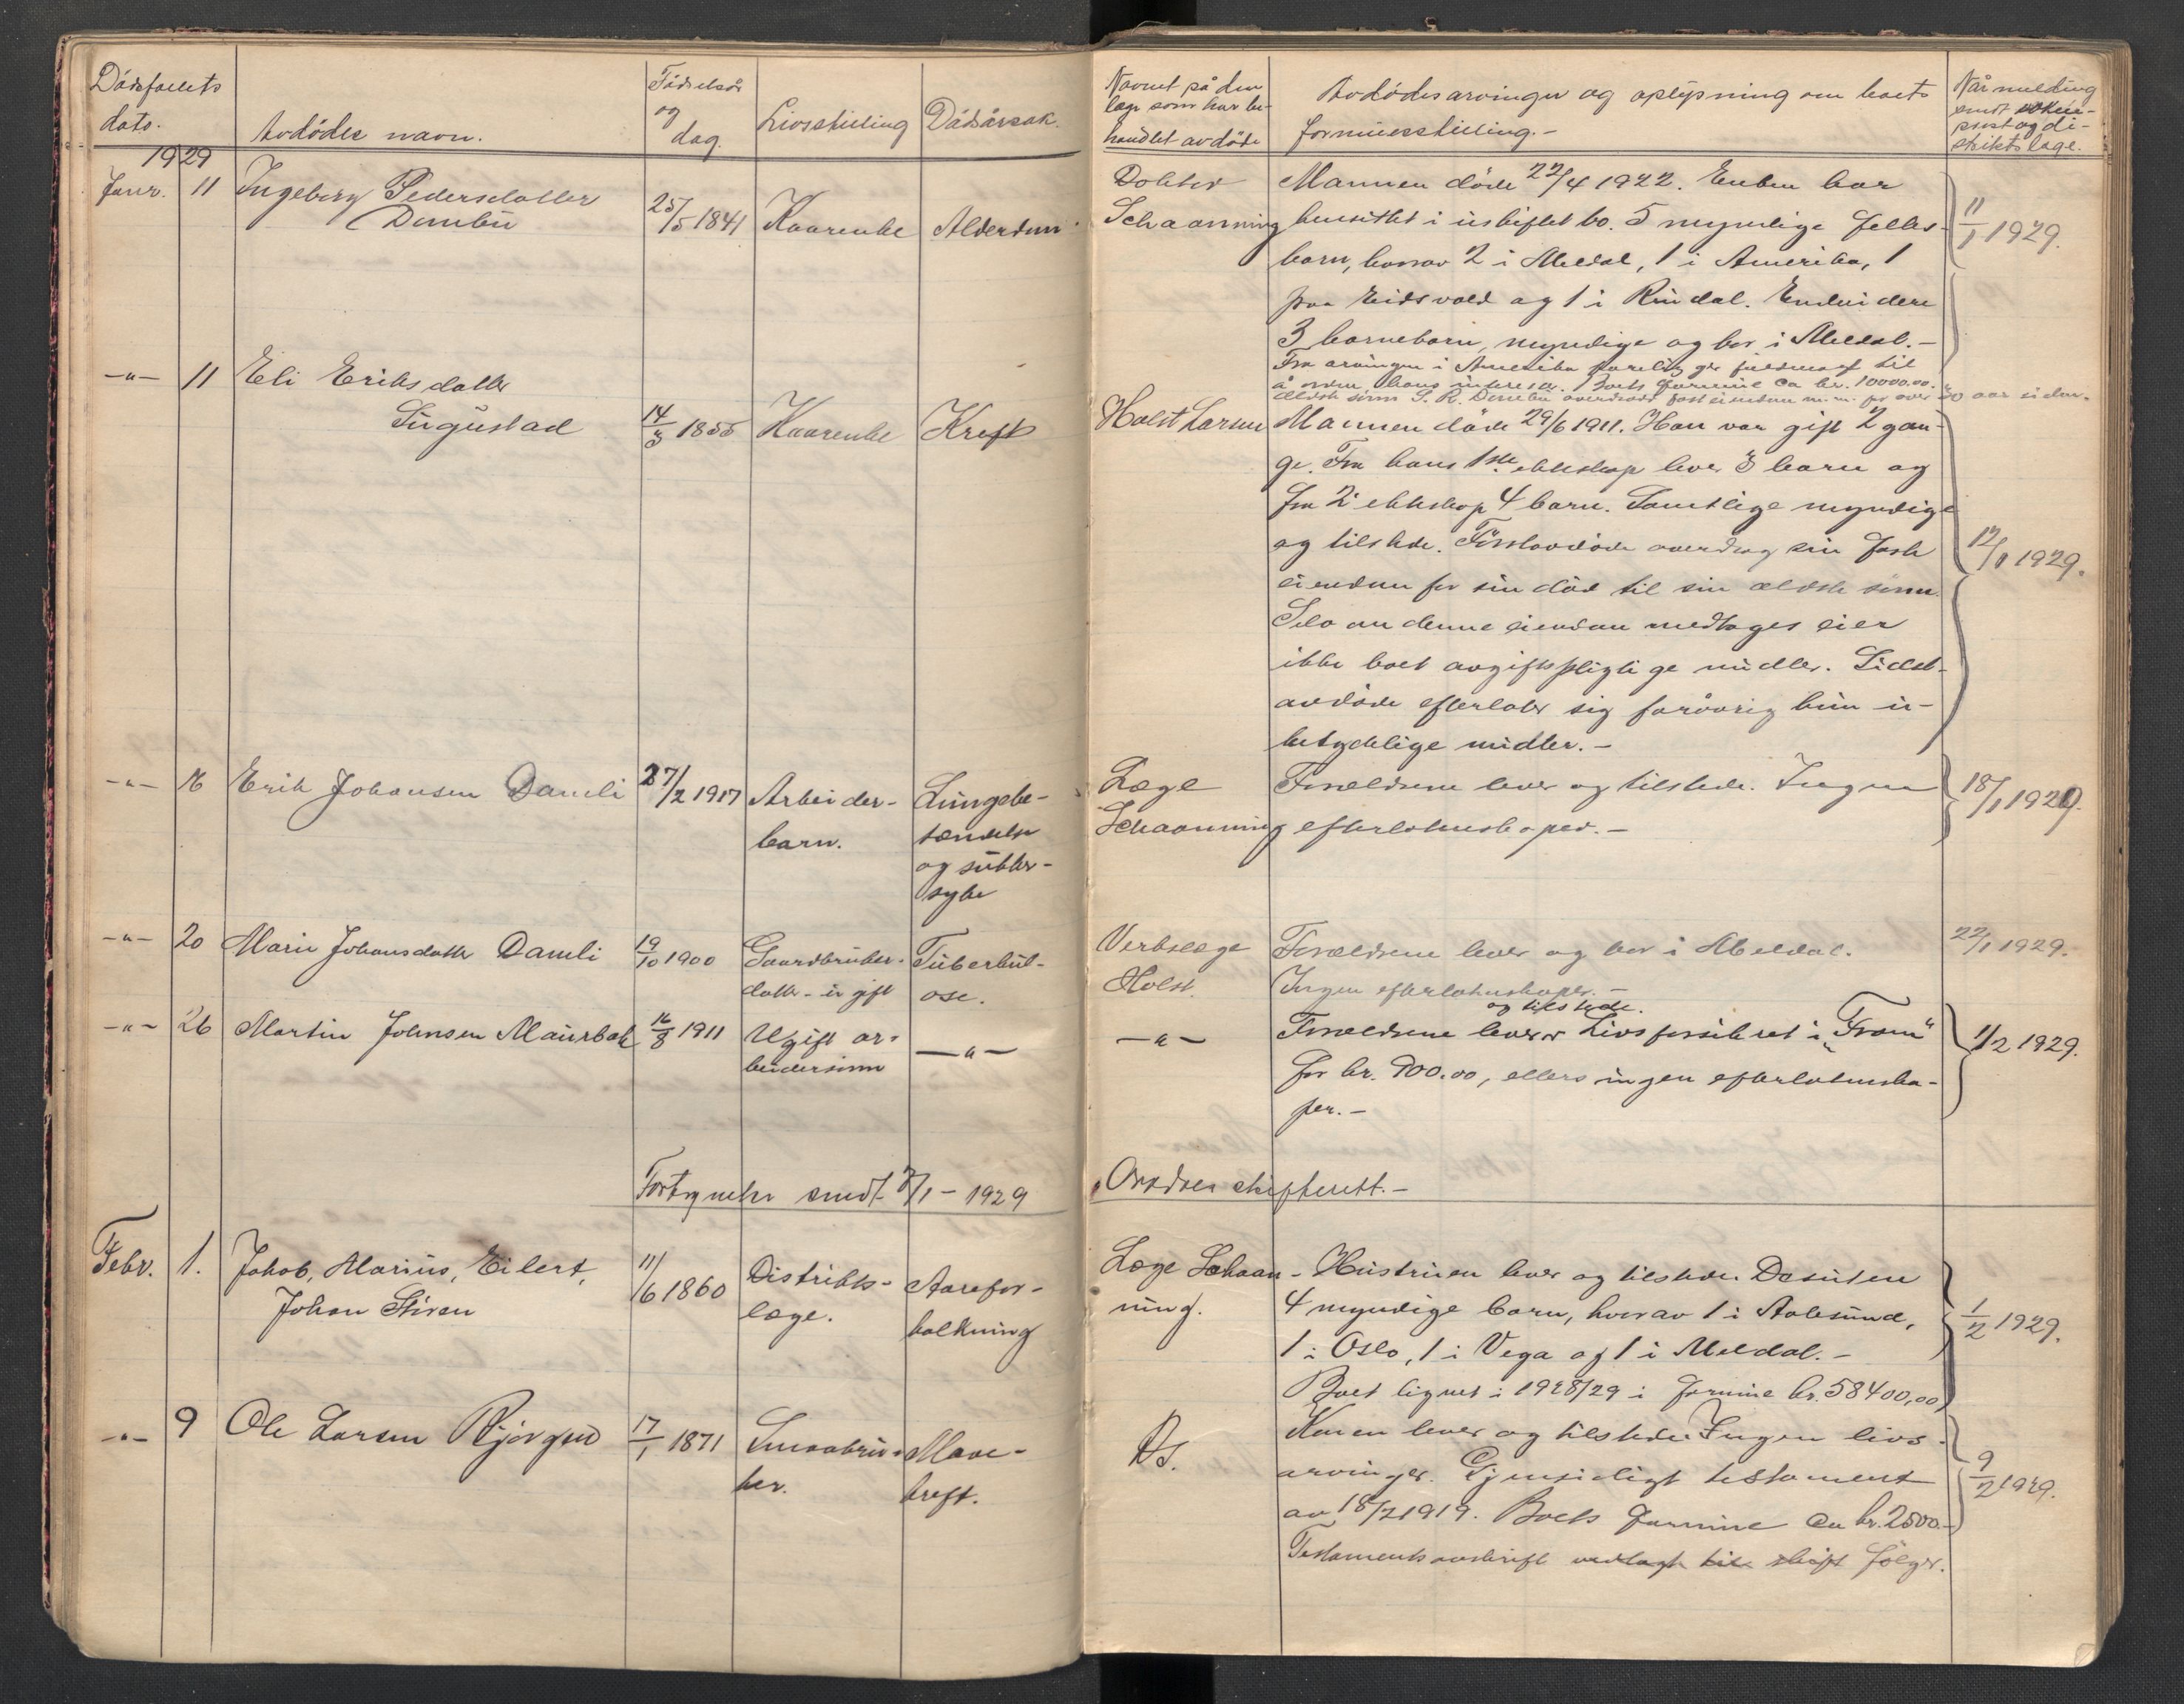 Dødsfallets
dato.
Avdødes navn.
Fødselsår
og
dag.
Livsstilling
Dødsårsak.
1929
Janr. 11 Ingeborg Pedersdatter
25/5 1841 Kaarenke Alderdom
-"- 11 Eli Eriksdatter
14/3 1855 Kaarenke Kreft
-"- 16 Erik Johansen Damli 27/2 1917 Arbeider- Lungebe-
barn. tændelse
og sukker-
syke
-"- 20 Marie Johansdatter Damli 19/10 1900 Gaardbruker- Tuberkul-
datter - ugift ose.
-"- 26 Martin Johnsen 16/8 1911 Ugift ar- -"-
beidersønn
Fortegnelse sendt /1 - 1929
Febr. 1. Jakob, Marius, Eilert, 11/6 1860 Distrikts- Aarefor-
Johan læge. kalkning
-"- 9 Ole Larsen 17/1 1871 Smaabru- Mave-
ker. kreft.
Navnet på den
læge som har be-
handlet avdøde
Avdødes arvinger og oplysning om boets
formuesstilling.-
Når melding
sendt sokne-
prest og di-
striktslæge.
Doktor Mannen døde 22/4 1922. Enken har
Schaanning hensittet i uskiftet bo. 5 myndige felles-
barn, hvorav 2 i Meldal, 1 i Amerika, 1
paa Eidsvold og 1 i Rindal. Endvidere
3 barnebarn, myndige og bor i Meldal.-
11/1 1929.
Fra arvingen i Amerika foreligger fuldmagt til
å hans interesser. Boets formue ca kr. 10000.00.
Ældste sønn overdradd fast eiendom m.m. for over aar siden.
Holst Larsen Mannen døde 29/6 1911. Han var gift 2 gan-
ge. Fra hans 1ste ekteskap lever 3 barn og
fra 2' ekteskap 4 barn. Samtlige myndige
og tilstede. Førstavdøde overdrog sin faste
eiendom før sin død til sin ældste sønn.
Selv om denne eiendom medtages eier
ikke boet avgiftspligtige midler. Sidst-
avdøde efterlater sig forøvrig kun u-
betydelige midler.-
12/1 1929.
Læge Forældrene lever og tilstede. Ingen
Schaanning efterlatenskaper.-
18/1 1929.
Verkslæge Forældrene lever og bor i Meldal.
Holst. Ingen efterlatenskaper.-
22/1 1929.
og tilstede.
-"- Forældrene lever Livsforsikret i "Fram"
for kr. 900.00, ellers ingen efterlatenska-
per.-
1/2 1929.
Orkdal skifterett.-
Læge Schaan- Hustruen lever og tilstede. Desuten
ning. 4 myndige barn, hvorav 1 i Aalesund,
1 i Oslo, 1 i Vega og 1 i Meldal.-
Boet lignet i 1928/29 i formue kr. 58400,00
1/2 1929.
Ds. Konen lever og tilstede. Ingen livs-
arvinger. Gjensidigt testament
av 18/7 1919. Boets formue ca kr. 2500.-
Testamentsavskrift vedlagt til skift følger.
9/2 1929.